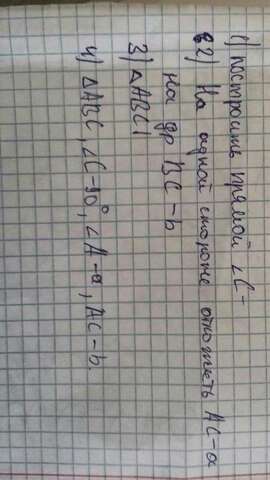 1) построить прямой ∠C -
2) На одной стороне отложить AC-a
на др BC-b
3) △ABC
4) △ABC, ∠C-90°, ∠A-a, AC-b.